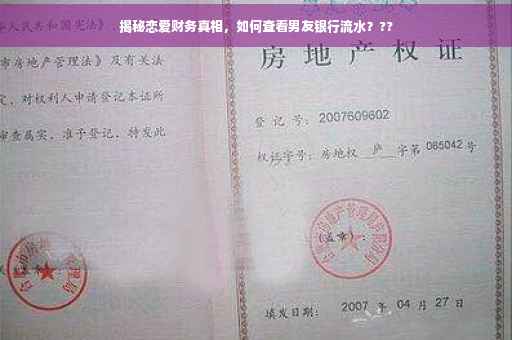 揭秘恋爱财务真相，如何查看男友银行流水？??
人民共和国宪法》、
市房地产管理法》及有关法
定，对权利人申请登记本证所
审查属实，准予登记，特发此
房地产权证
登记号：2007609602
权证字号：房地权 庐 字第 085042 号
(盖章)：
填发日期：2007 年 04 月 27 日